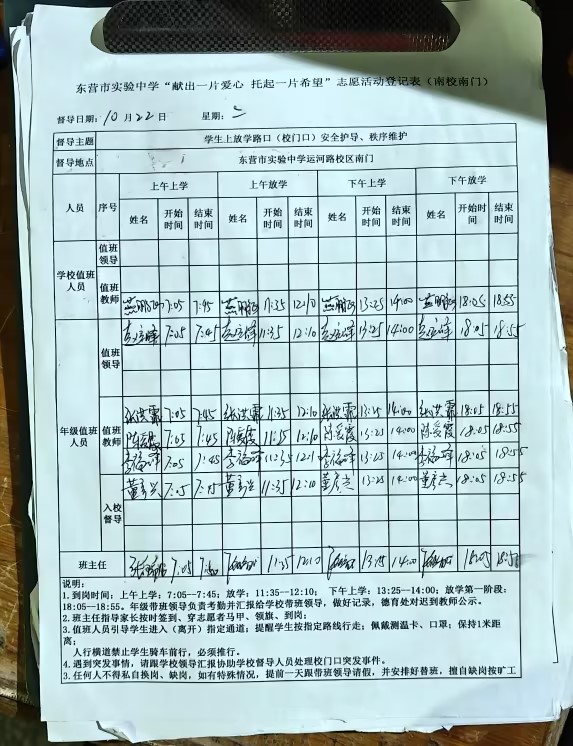 东营市实验中学“献出一片爱心 托起一片希望”志愿活动登记表（南校南门）
督导日期：10月22日 星期：二
督导主题 学生上放学路口（校门口）安全护导、秩序维护
督导地点 东营市实验中学运河路校区南门
人员 序号 上午上学 上午放学 下午上学 下午放学
姓名 开始时间 结束时间 姓名 开始时间 结束时间 姓名 开始时间 结束时间 姓名 开始时间 结束时间
学校值班人员 值班领导
值班教师 7:05 7:45 11:35 12:10 13:25 14:00 18:05 18:55
年级值班人员 值班领导 7:05 7:45 11:35 12:10 13:25 14:00 18:05 18:55
值班教师 张洪霞 7:05 7:45 张洪霞 11:35 12:10 张洪霞 13:25 14:00 张洪霞 18:05 18:55
陈爱霞 7:05 7:45 陈爱霞 11:35 12:10 陈爱霞 13:25 14:00 陈爱霞 18:05 18:55
7:05 7:45 11:35 12:10 13:25 14:00 18:05 18:55
入校督导 董彦兰 7:05 7:45 董彦兰 11:35 12:10 董彦兰 13:25 14:00 董彦兰 18:05 18:55
班主任 7:05 11:35 12:10 13:25 14:00 18:05
说明：
1.到岗时间：上午上学：7:05--7:45；放学：11:35--12:10； 下午上学：13:25--14:00；放学第一阶段：
18:05--18:55。年级带班领导负责考勤并汇报给学校带班领导，做好记录，德育处对迟到教师公示。
2.班主任指导家长按时签到、穿志愿者马甲、领旗、到岗；
3.值班人员引导学生进入（离开）指定通道；提醒学生按指定路线行走；佩戴测温卡、口罩；保持1米距
离；
人行横道禁止学生骑车前行，必须推行。
4.遇到突发事情，请跟学校领导汇报协助学校督导人员处理校门口突发事件。
3.任何人不得私自换岗、缺岗，如有特殊情况，提前一天跟带班领导请假，并安排好替班，擅自缺岗按旷工